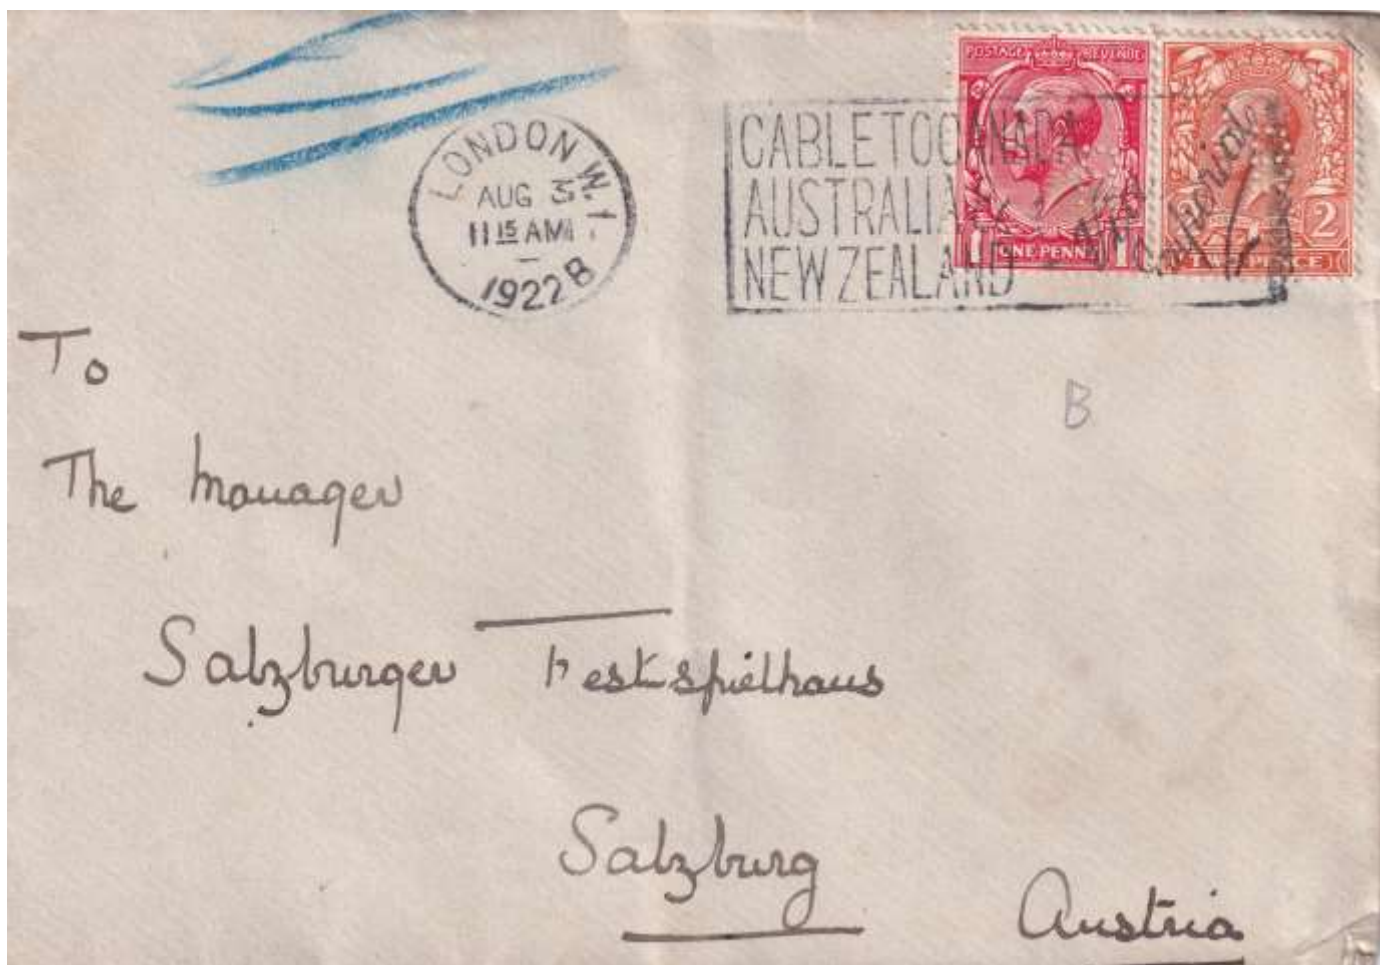 LONDON W.1
AUG 3
11 15 AM
1922 B
CABLE TO CANADA
AUSTRALIA
NEW ZEALAND
Via Imperial
POSTAGE REVENUE
1 ONE PENNY 1
2 TWO PENCE 2
B
To
The Manager
Salzburger Festspielhaus
Salzburg
Austria